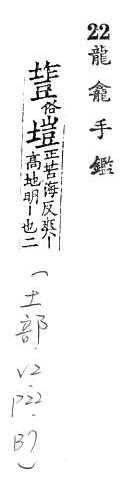 22 龍龕手鑑
俗塏正苦海反爽丨高地明丨也二
(土部.V2.P22.B7)